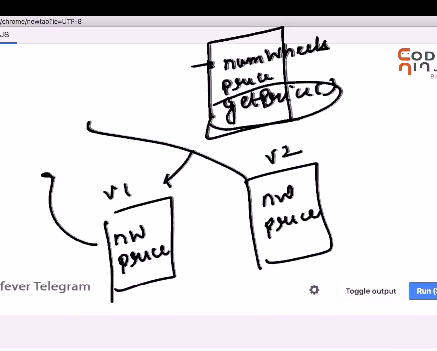 /chrome/newtab?ie=UTF-8
JS
COD
NINJ
numWheels
price
getPrice()
v1
v2
nW
price
nW
price
fever Telegram
Toggle output
Run (